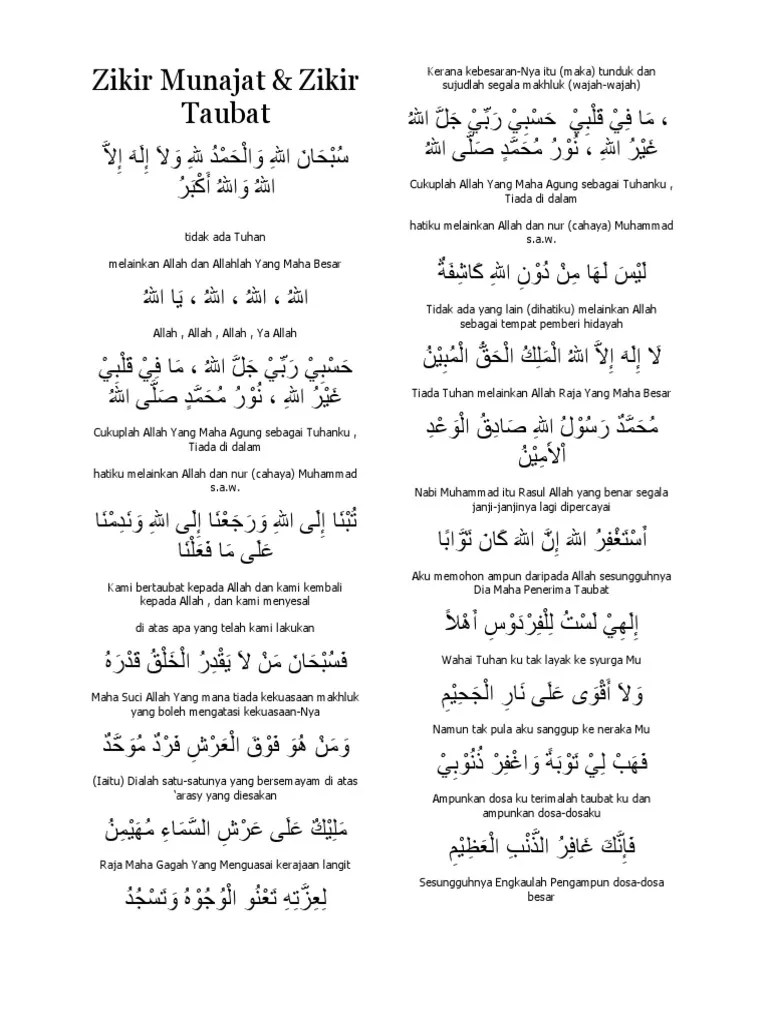 Zikir Munajat & Zikir
Taubat
سُبْحَانَ اللهِ وَالْحَمْدُ لِلهِ وَلاَ إِلَهَ إِلاَّ
اللهُ وَاللهُ أَكْبَرُ
tidak ada Tuhan
melainkan Allah dan Allahlah Yang Maha Besar
اللهُ ، اللهُ ، اللهُ ، يَا اللهُ
Allah , Allah , Allah , Ya Allah
حَسْبِيْ رَبِّيْ جَلَّ اللهُ ، مَا فِيْ قَلْبِيْ
غَيْرُ اللهِ ، نُوْرُ مُحَمَّدٍ صَلَّى اللهُ
Cukuplah Allah Yang Maha Agung sebagai Tuhanku ,
Tiada di dalam
hatiku melainkan Allah dan nur (cahaya) Muhammad
s.a.w.
تُبْنَا إِلَى اللهِ وَرَجَعْنَا إِلَى اللهِ وَنَدِمْنَا
عَلَى مَا فَعَلْنَا
Kami bertaubat kepada Allah dan kami kembali
kepada Allah , dan kami menyesal
di atas apa yang telah kami lakukan
فَسُبْحَانَ مَنْ لاَ يَقْدِرُ الْخَلْقُ قَدْرَهُ
Maha Suci Allah Yang mana tiada kekuasaan makhluk
yang boleh mengatasi kekuasaan-Nya
وَمَنْ هُوَ فَوْقَ الْعَرْشِ فَرْدٌ مُوَحَّدٌ
(Iaitu) Dialah satu-satunya yang bersemayam di atas
‘arasy yang diesakan
مَلِيْكٌ عَلَى عَرْشِ السَّمَاءِ مُهَيْمِنُ
Raja Maha Gagah Yang Menguasai kerajaan langit
لِعِزَّتِهِ تَعْنُو الْوُجُوْهُ وَتَسْجُدُ
Kerana kebesaran-Nya itu (maka) tunduk dan
sujudlah segala makhluk (wajah-wajah)
، مَا فِيْ قَلْبِيْ حَسْبِيْ رَبِّيْ جَلَّ اللهُ
غَيْرُ اللهِ ، نُوْرُ مُحَمَّدٍ صَلَّى اللهُ
Cukuplah Allah Yang Maha Agung sebagai Tuhanku ,
Tiada di dalam
hatiku melainkan Allah dan nur (cahaya) Muhammad
s.a.w.
لَيْسَ لَهَا مِنْ دُوْنِ اللهِ كَاشِفَةٌ
Tidak ada yang lain (dihatiku) melainkan Allah
sebagai tempat pemberi hidayah
لَا إِلَه إِلاَّ اللهُ الْمَلِكُ الْحَقُّ الْمُبِيْنُ
Tiada Tuhan melainkan Allah Raja Yang Maha Besar
مُحَمَّدٌ رَسُوْلُ اللهِ صَادِقُ الْوَعْدِ
اْلأَمِيْنُ
Nabi Muhammad itu Rasul Allah yang benar segala
janji-janjinya lagi dipercayai
أَسْتَغْفِرُ اللهَ إِنَّ اللهَ كَانَ تَوَّابًا
Aku memohon ampun daripada Allah sesungguhnya
Dia Maha Penerima Taubat
إِلَهِيْ لَسْتُ لِلْفِرْدَوْسِ أَهْلاً
Wahai Tuhan ku tak layak ke syurga Mu
وَلاَ أَقْوَى عَلَى نَارِ الْجَحِيْمِ
Namun tak pula aku sanggup ke neraka Mu
فَهَبْ لِيْ تَوْبَةً وَاغْفِرْ ذُنُوْبِيْ
Ampunkan dosa ku terimalah taubat ku dan
ampunkan dosa-dosaku
فَإِنَّكَ غَافِرُ الذَّنْبِ الْعَظِيْمِ
Sesungguhnya Engkaulah Pengampun dosa-dosa
besar